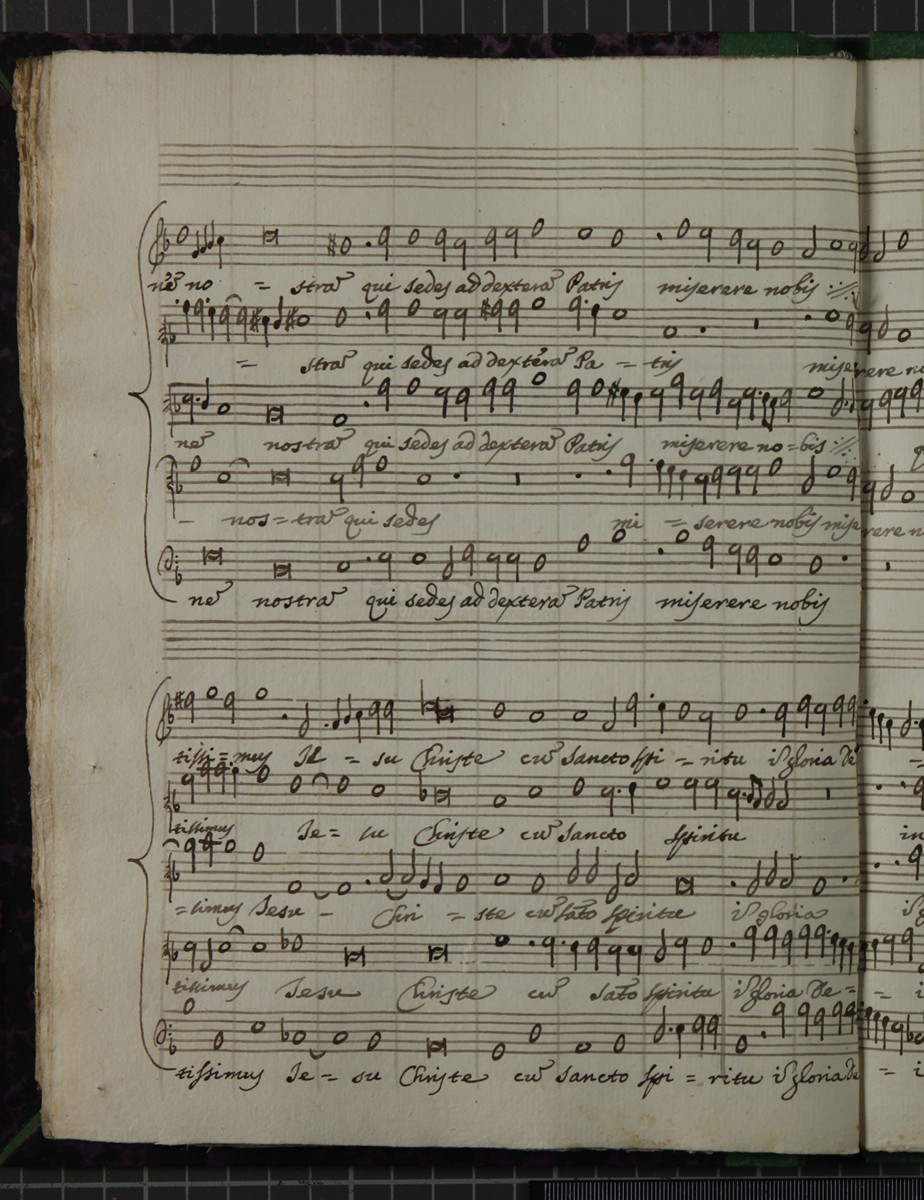 nē no = strā qui sedes ad dexterā Patris miserere nobis :||:
= strā qui sedes ad dexterā Pa = tris miserere
nē nostrā qui sedes ad dexterā Patris miserere no=bis :||:
- nos=trā qui sedes mi = serere nobis miserere
nē nostrā qui sedes ad dexterā Patris miserere nobis
tissi=mus Je = su Christe cū Sancto Spi = ritu ī gloria De =
tissimus Je= su Christe cū Sancto Spiritu in
=simus Jesu - Chri = ste cū Sāto Spiritu ī gloria ī
tissimus Jesu Christe cū Sāto Spiritu ī gloria De= =
tissimus Je = su Christe cū Sancto Spi = ritu ī gloria De =